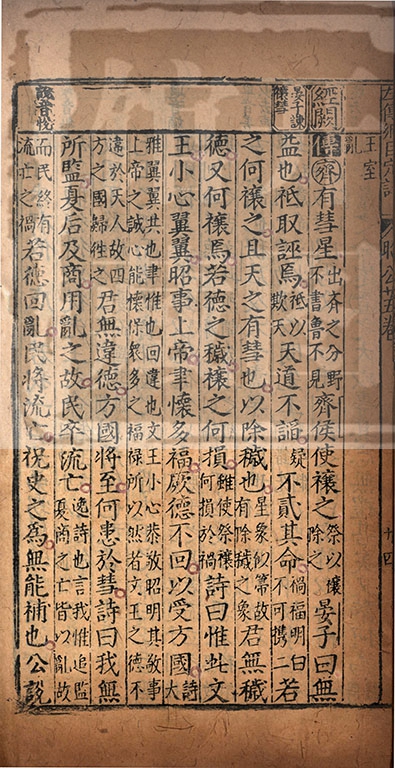 昭公五卷
十四
王室亂
經闕
傳齊有彗星出齊之分野不書魯不見齊侯使禳之祭以禳除之晏子曰無
晏子諫禳彗
益也袛取誣焉袛以欺天天道不諂疑不貳其命禍福明白不可攜二若
之何禳之且天之有彗也以除穢也星象似箒故有除穢之象君無穢
德又何禳焉若德之穢禳之何損雖使祭禳何損於禍詩曰惟此文
王小心翼翼昭事上帝聿懷多福厥德不回以受方國詩大
雅翼翼共也聿惟也回違也文王小心恭敬昭明其敬事
上帝之誠心能懷保衆多之福祿所以然若文王之德不
違於天人故四方之國歸往之君無違德方國將至何患於彗詩曰我無
所監夏后及商用亂之故民卒流亡逸詩也言我惟追監夏商之亡皆以亂故
說音悅
而民終有流亡之禍若德回亂民將流亡祝史之爲無能補也公說